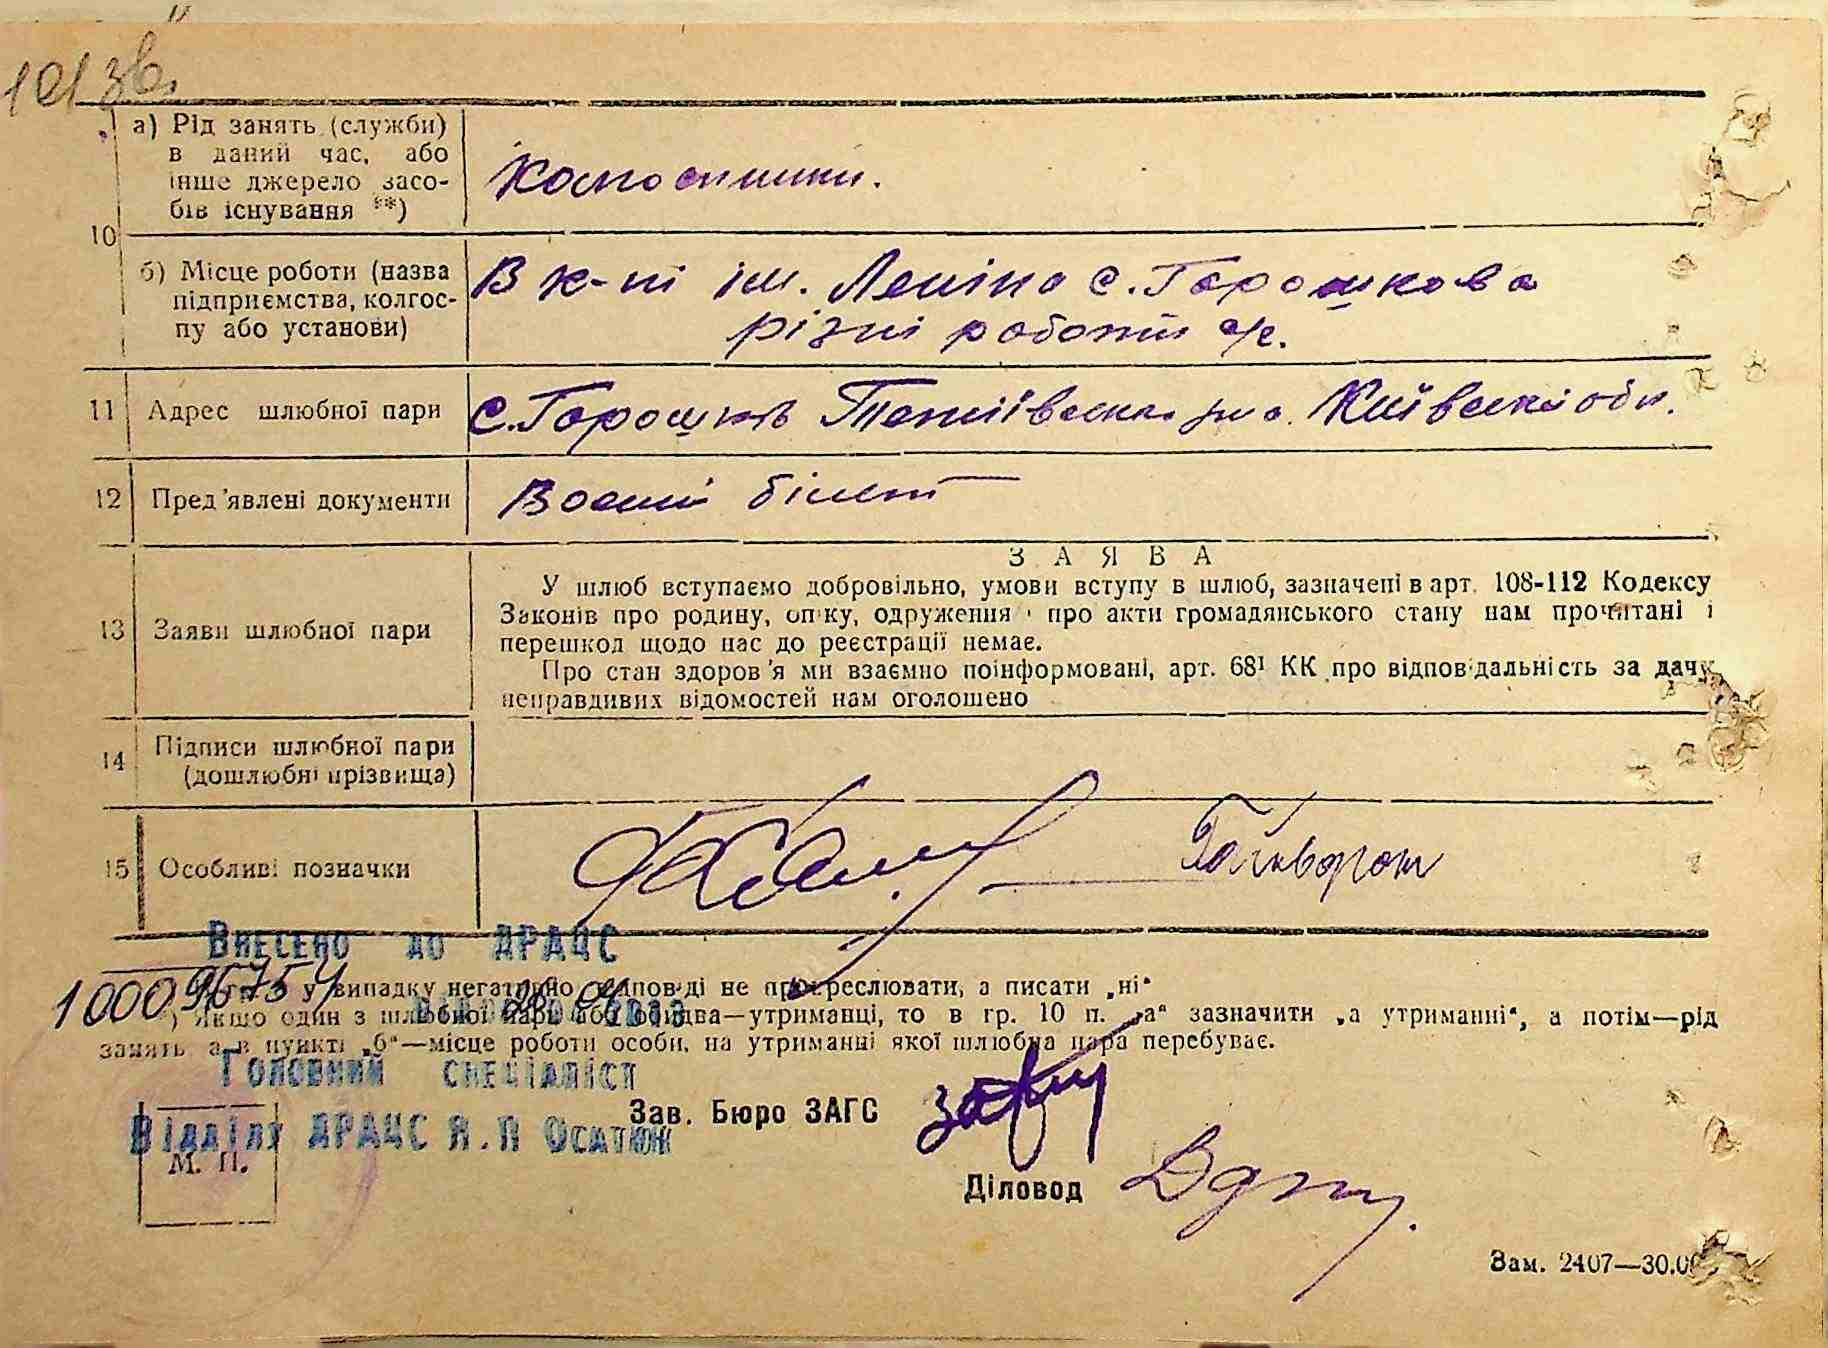 101 зв.
а) Рід занять (служби)
в даний час, або
інше джерело засо-
бів існування **)
Колгоспники.
10
б) Місце роботи (назва
підприємства, колгос-
пу або установи)
В к-пі ім. Леніна с. Горошкова
різні роботи с/г.
11 Адрес шлюбної пари
с. Горошків Тетіївськ. р-на. Київської обл.
12 Пред'явлені документи
Воєний білет
13 Заяви шлюбної пари
ЗАЯВА
У шлюб вступаємо добровільно, умови вступу в шлюб, зазначені в арт. 108-112 Кодексу
Законів про родину, опіку, одруження і про акти громадянського стану нам прочитані і
перешкод щодо нас до реєстрації немає.
Про стан здоров'я ми взаємно поінформовані, арт. 68¹ КК про відповідальність за дачу
неправдивих відомостей нам оголошено
14 Підписи шлюбної пари
(дошлюбні прізвища)
15 Особливі позначки
Внесено до ДРАЦС
100096754
у випадку негативно відповіді не прокреслювати, а писати „ні“
2013
) Якщо один з шлюбної пари або обидва—утриманці, то в гр. 10 п. „а“ зазначити „а утриманні“, а потім—рід
занять а в пункті „б“—місце роботи особи, на утриманні якої шлюбна пара перебуває.
Головний спеціаліст
Зав. Бюро ЗАГС
Відділу ДРАЦС Я.П Осатюк
М. П.
Діловод
Зам. 2407—30.0